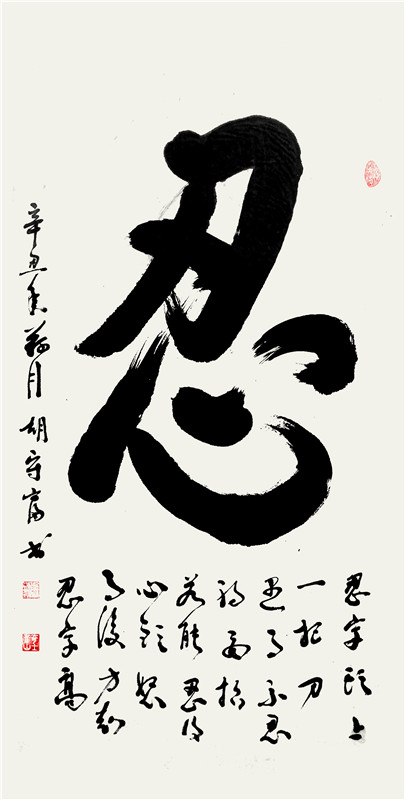 忍
忍字头上
一把刀
遇事不忍
祸招
若能忍得
心头怒
事后方知
忍字高
辛丑年菊月胡守富书